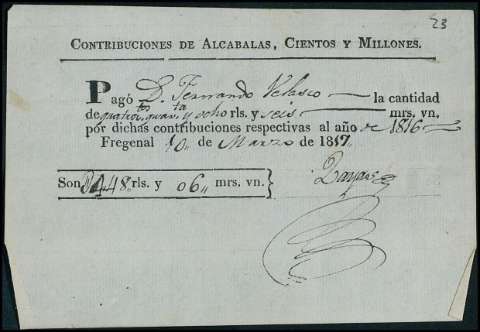 23
CONTRIBUCIONES DE ALCABALAS, CIENTOS Y MILLONES.
Pagó D. Fernando Velasco la cantidad
de quatro.tos quar.ta y ocho rls. y seis mrs. vn.
por dichas contribuciones respectivas al año de 1816
Fregenal 10 de Marzo de 1817.
Son 448 rls. y 06 mrs. vn.